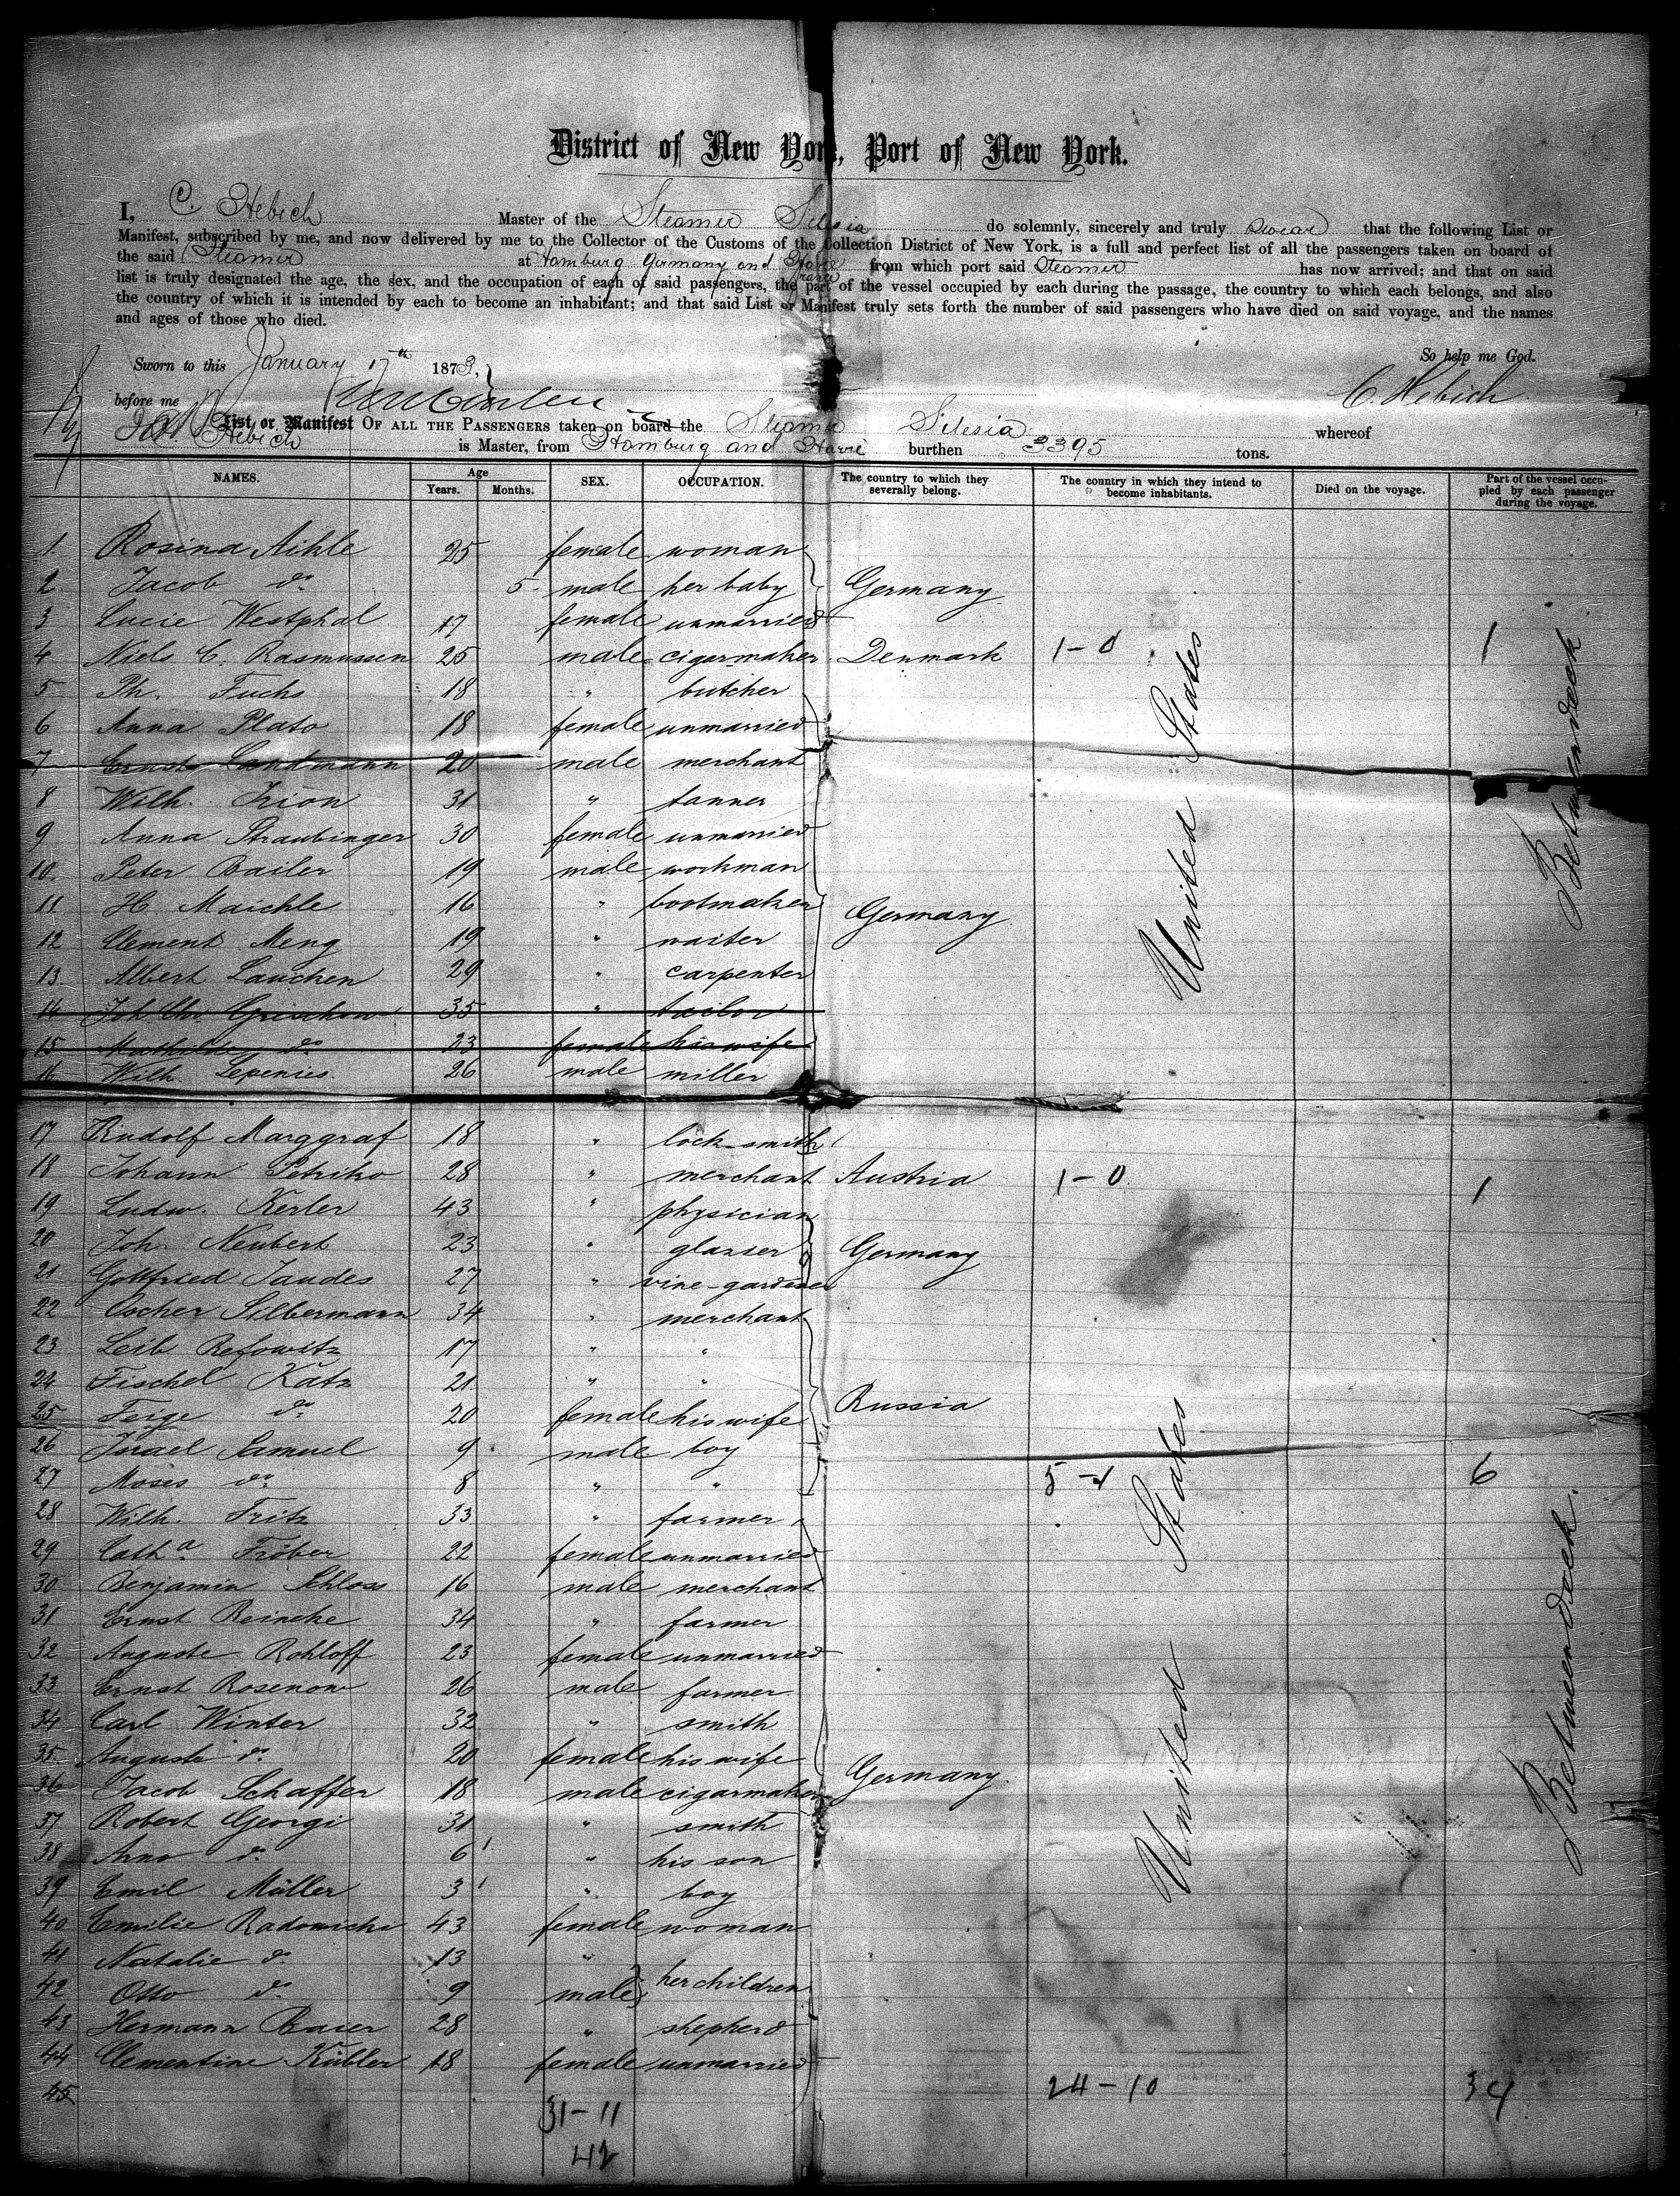 District of New York, Port of New York.
I, C. Hebich Master of the Steamer Silesia do solemnly, sincerely and truly swear that the following List or
Manifest, subscribed by me, and now delivered by me to the Collector of the Customs of the Collection District of New York, is a full and perfect list of all the passengers taken on board of
the said Steamer at Hamburg Germany and Havre France from which port said Steamer has now arrived; and that on said
list is truly designated the age, the sex, and the occupation of each of said passengers, the part of the vessel occupied by each during the passage, the country to which each belongs, and also
the country of which it is intended by each to become an inhabitant; and that said List or Manifest truly sets forth the number of said passengers who have died on said voyage, and the names
and ages of those who died.
So help me God.
Sworn to this January 17th 1873,
C. Hebich
before me
List or Manifest OF ALL THE PASSENGERS taken on board the Steamer Silesia whereof
Hebich is Master, from Hamburg and Havre burthen 3395 tons.
NAMES. Age Years. Months. SEX. OCCUPATION. The country to which they severally belong. The country in which they intend to become inhabitants. Died on the voyage. Part of the vessel occupied by each passenger during the voyage.
1. Rosina Aihle 25 female woman
2. Jacob do 5 male her baby Germany
3 Lucie Westphal 17 female unmarried
4 Niels C. Rasmussen 25 male cigarmaker Denmark 1-0 1
5 Ph. Fuchs 18 " butcher
6 Anna Plato 18 female unmarried
7 Ernst Landmann 20 male merchant
8 Wilh. Irion 31 " tanner
9 Anna Straubinger 30 female unmarried
10. Peter Bailer 19 male workman
11 H. Maichle 16 " bootmaker Germany
12 Clement Meng 19 " waiter
13. Albert Lauchen 29 " carpenter
14 Joh. Chr. Grischow 35 " tailor
15 Mathilde do 23 female his wife
16 Wilh. Lepenies 26 male miller
17 Rudolf Marggraf 18 " lock-smith
18 Johann Petriko 28 " merchant Austria 1-0 1
19 Ludw. Kerler 43 " physician
20 Joh. Neubert 23 " glazier Germany
21 Gottfried Jaudes 27 " vine-gardener
22 Oscher Silbermann 34 " merchant
23 Leib Refowitz 17 " "
24 Fischel Katz 21 " "
25 Feige do 20 female his wife Russia
26 Israel Samuel 9 male boy
27 Moses do 8 " " 5-1 6
28 Wilh. Fritz 33 " farmer
29 Catha Fröber 22 female unmarried
30 Benjamin Schloss 16 male merchant
31 Ernst Reincke 34 " farmer
32 Auguste Rohloff 23 female unmarried
33 Ernst Rosenow 26 male farmer
34 Carl Winter 32 " smith
35. Auguste do 20 female his wife
36 Jacob Schaffer 18 male cigarmaker Germany.
37 Robert Georgi 31 " smith
38 Arno do 6 " his son
39 Emil Müller 3 " boy
40 Emilie Radowichi 43 female woman
41 Natalie do 13 "
42 Otto do 9 male her children
43 Hermann Baier 28 " shepherd
44 Clementine Kübler 18 female unmarried
45 24-10 34
31-11
42
United States
United States
Betweendeck
Betweendeck.